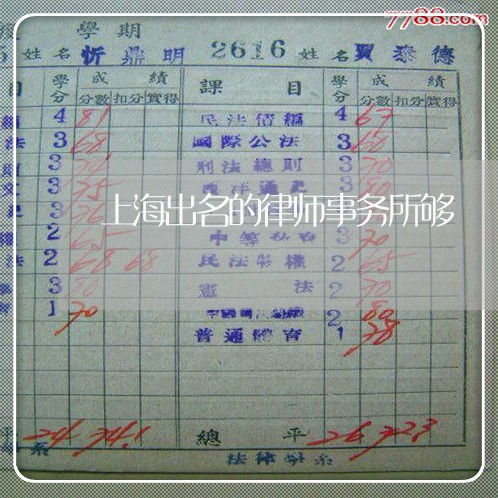 7788.com
學期
姓名 忻鼎明 2616 姓名 賈泰德
目 學分 成績 課目 學分 成績
分數 扣分 實得 分數 扣分 實得
4 81 民法債編 4 67
法 3 68 國際公法 3 60
3 刑法總則 3 70
3 75 西洋通史 3
3 76 3
上海出名的律师事务所够
2 65 3 70
法 2 68 68 民法物權 2 65
3 80 憲法 2 70
1 70 2 80
普通體育 1 78
平 24 74.1 總平 26 72.3
系 法律學系